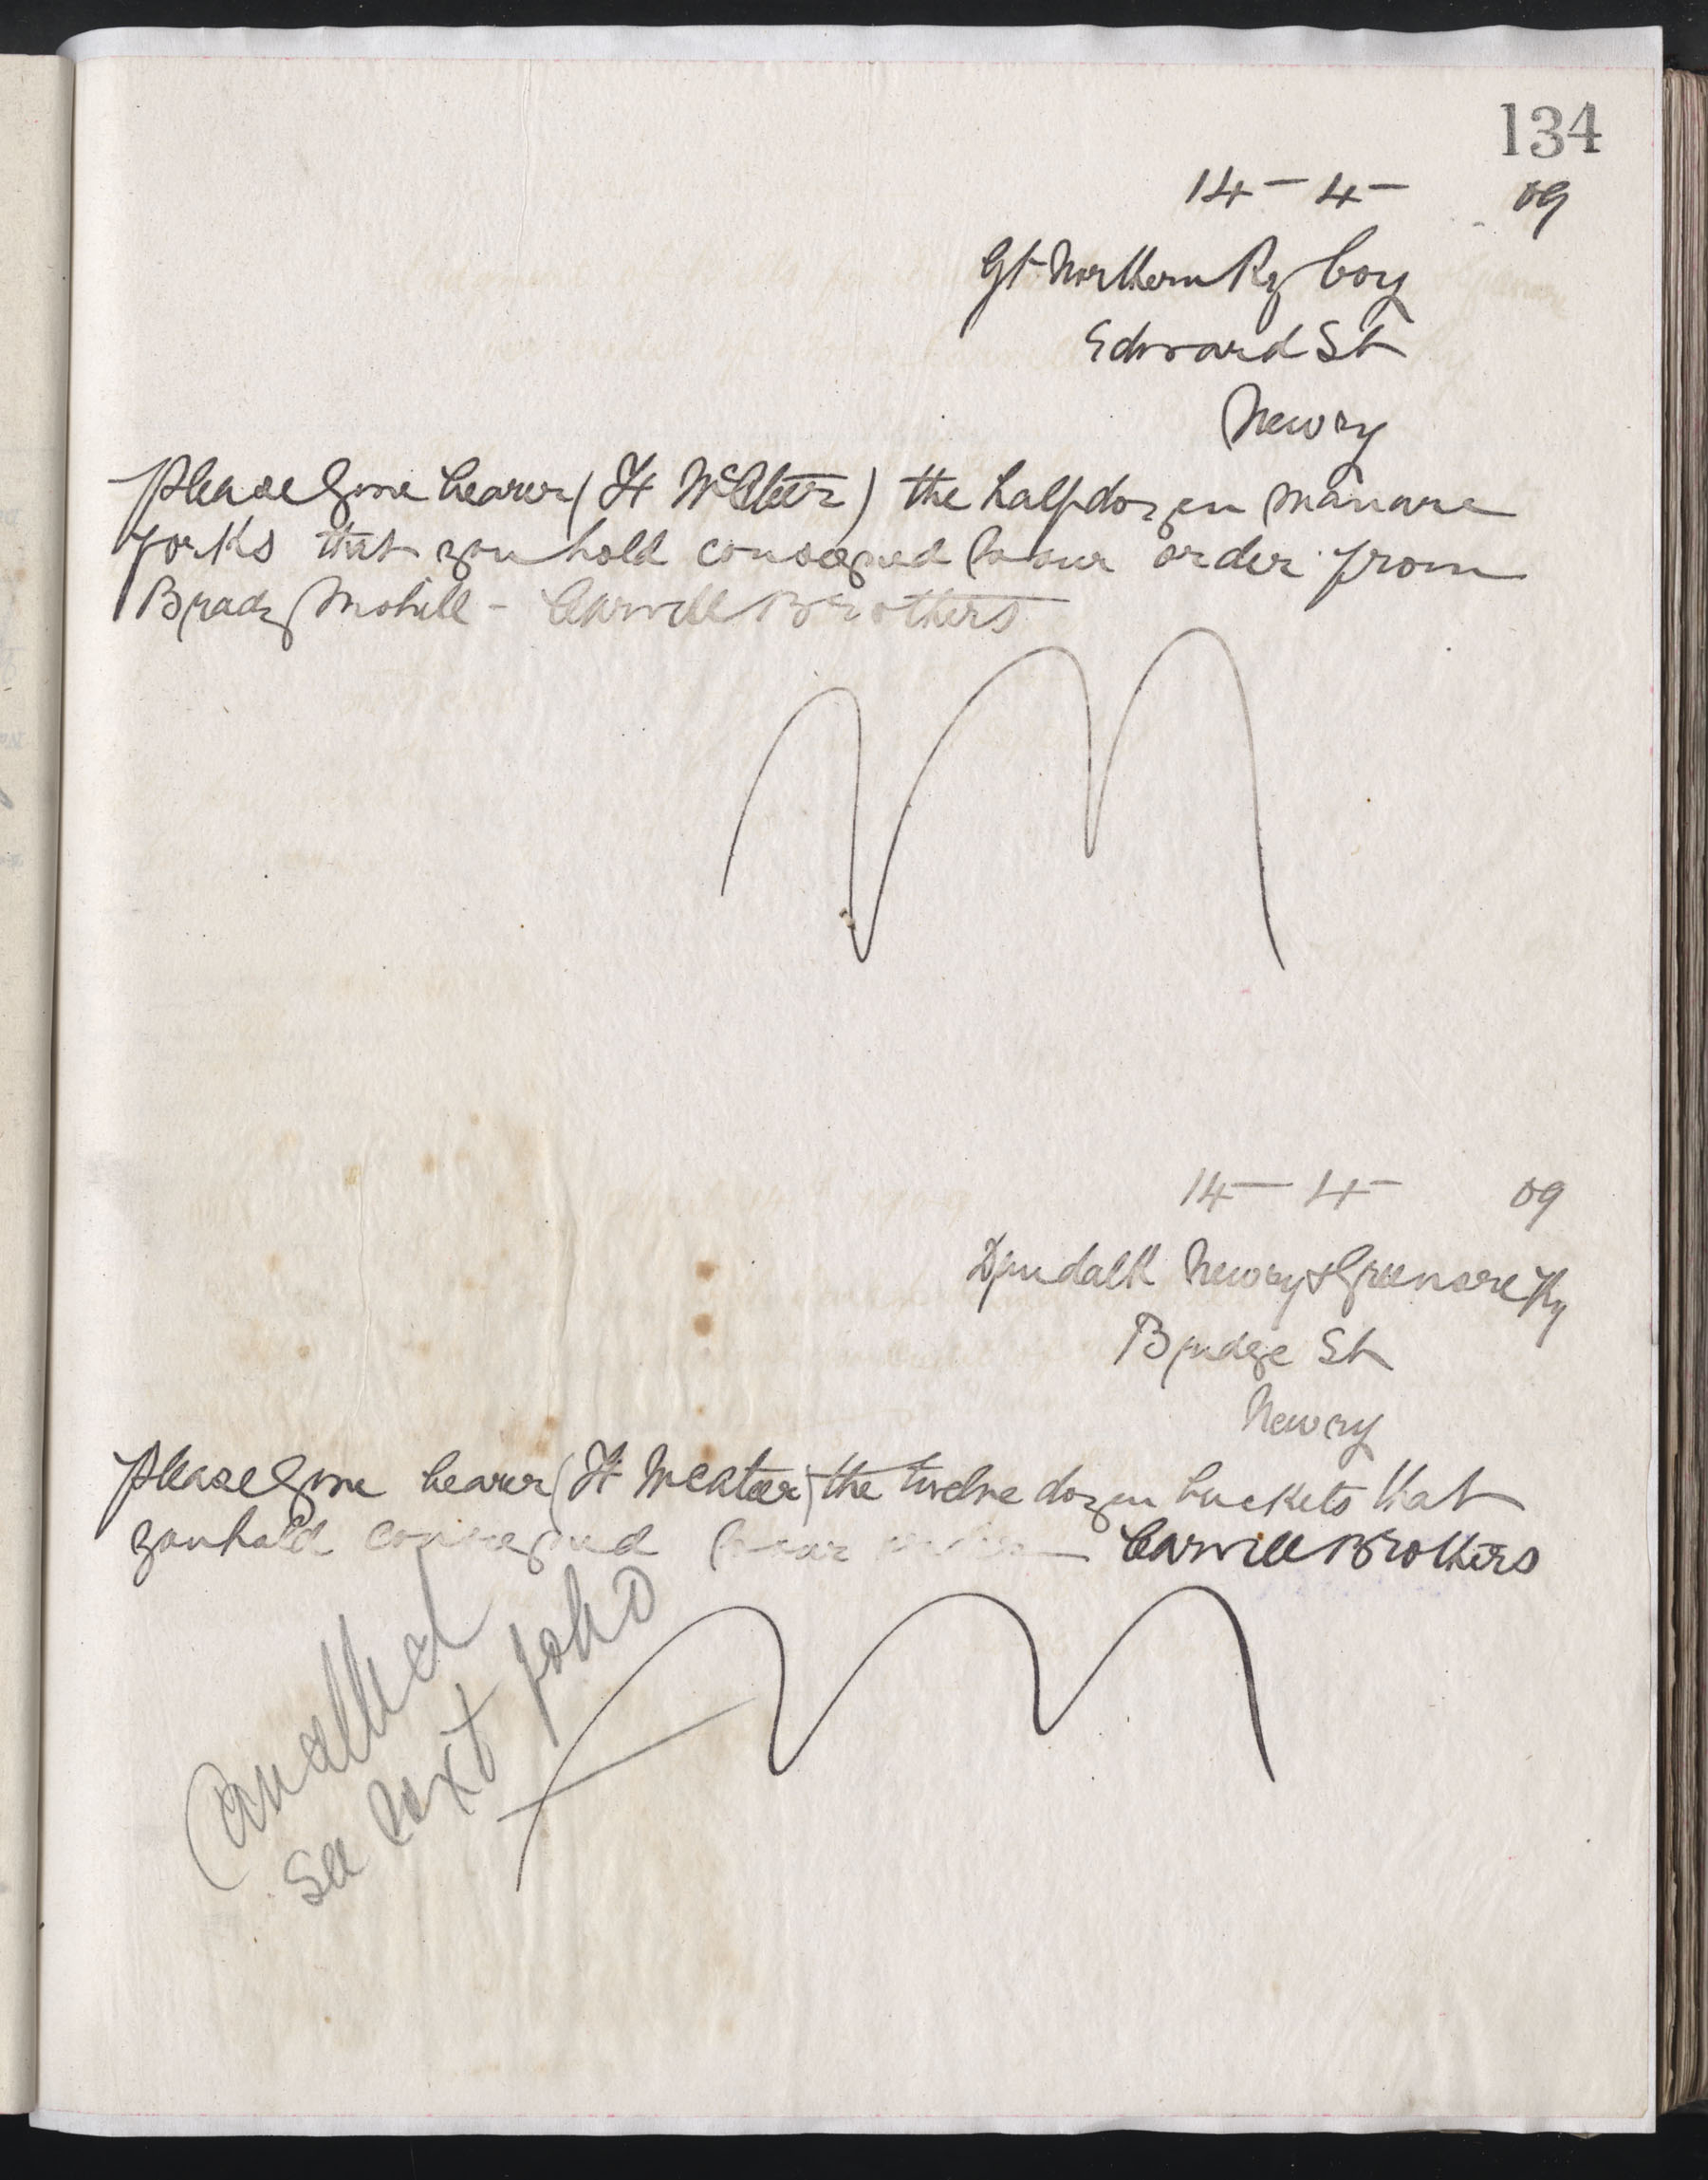 134
14 - 4 - 09
Gt Northern Ry Coy
Edward St
Newry
Please give bearer (H McAteer) the half dozen manure
forks that you hold consigned to our order from
Brady Mohill - Carvill Brothers
14 - 4 - 09
Dundalk Newry & Greenore Ry
Bridge St
Newry
Please give bearer (H McAteer) the twelve dozen buckets that
you hold consigned to our order Carvill Brothers
Cancelled
See next folio